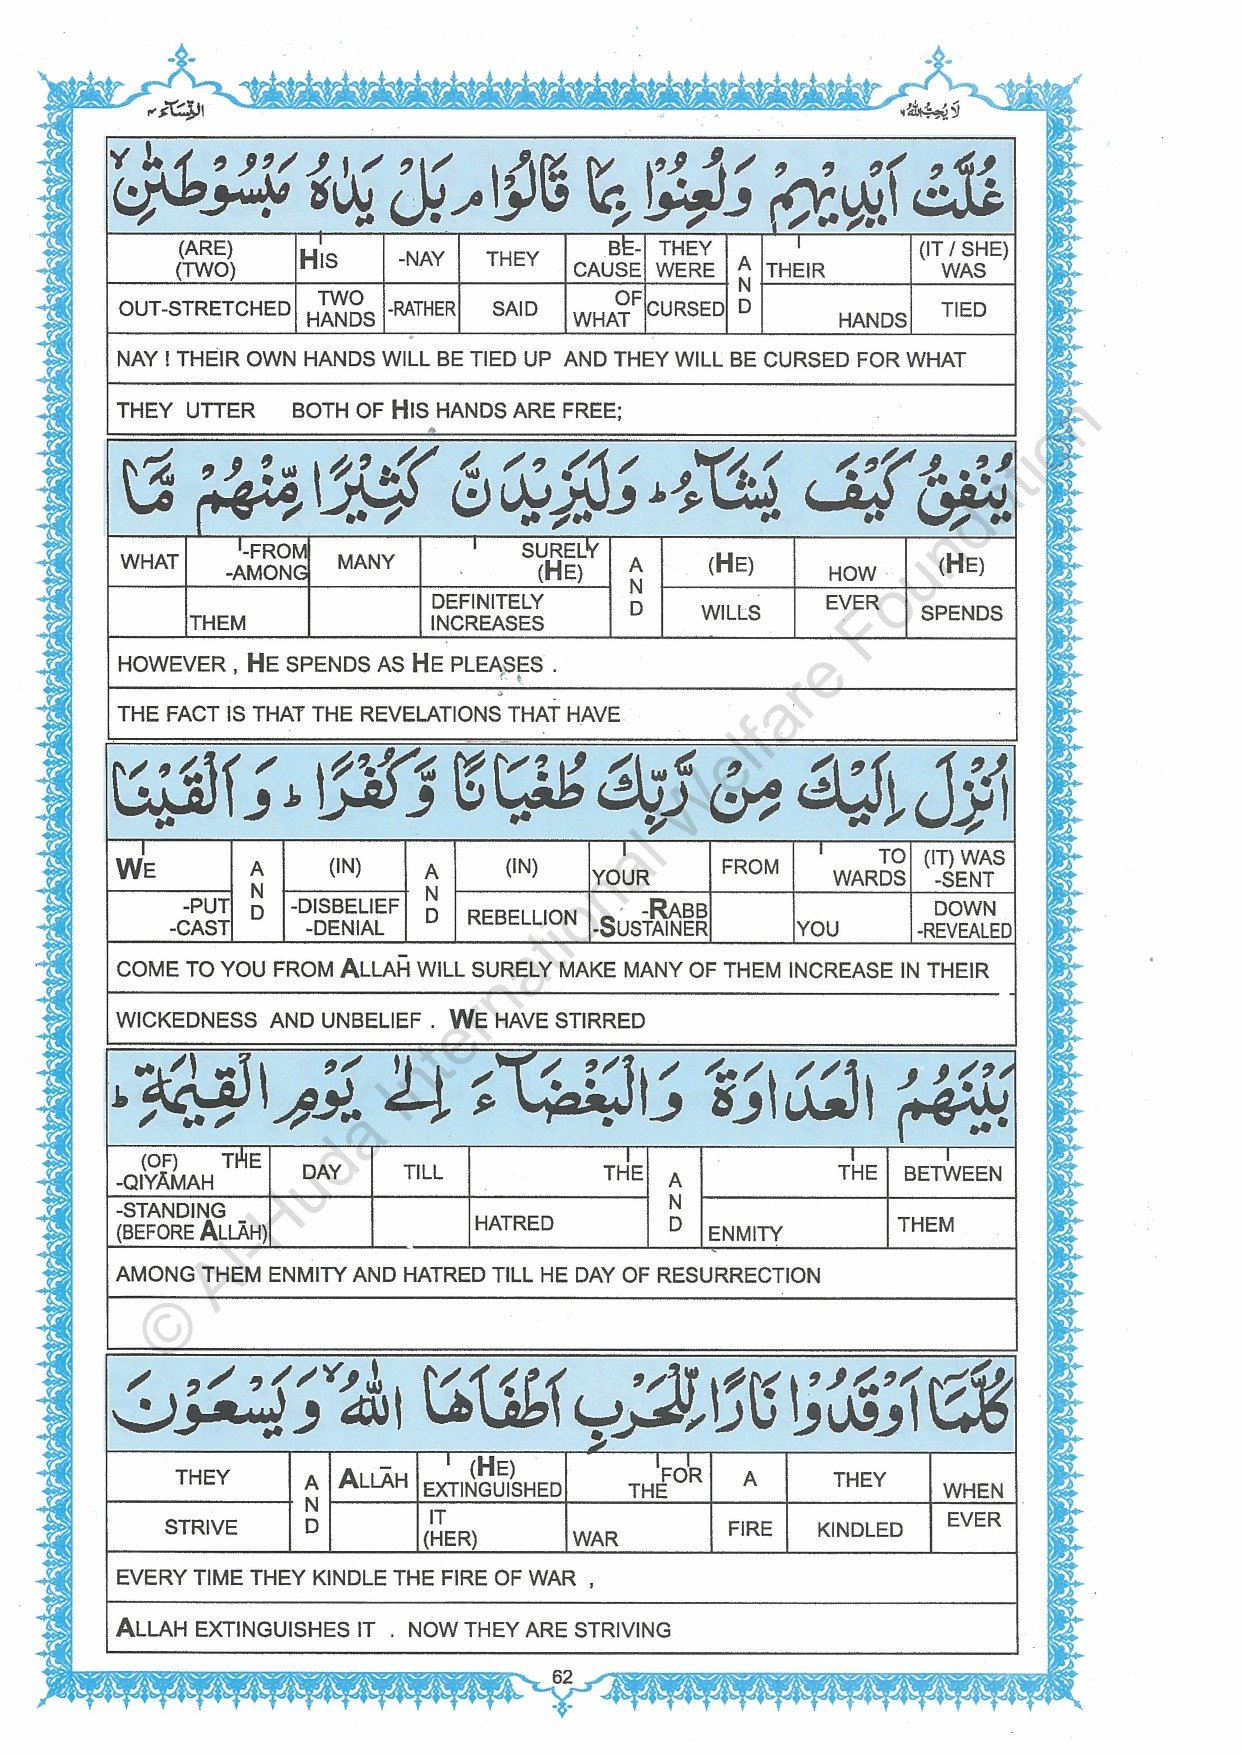 النِّسَآء ٤
لَا يُحِبُّ اللهُ ٦
غُلَّتْ اَيْدِيْهِمْ وَلُعِنُوْا بِمَا قَالُوْا م بَلْ يَدٰهُ مَبْسُوْطَتٰنِ لا
(ARE) HIS -NAY THEY BE- THEY A THEIR (IT / SHE)
(TWO) CAUSE WERE N WAS
OUT-STRETCHED TWO HANDS -RATHER SAID OF WHAT CURSED D HANDS TIED
NAY ! THEIR OWN HANDS WILL BE TIED UP AND THEY WILL BE CURSED FOR WHAT
THEY UTTER BOTH OF HIS HANDS ARE FREE;
يُنْفِقُ كَيْفَ يَشَآءُ ط وَلَيَزِيْدَنَّ كَثِيْرًا مِّنْهُمْ مَّا
WHAT -FROM MANY SURELY A (HE) HOW (HE)
-AMONG (HE) N
THEM DEFINITELY INCREASES D WILLS EVER SPENDS
HOWEVER , HE SPENDS AS HE PLEASES .
THE FACT IS THAT THE REVELATIONS THAT HAVE
اُنْزِلَ اِلَيْكَ مِنْ رَّبِّكَ طُغْيَانًا وَّكُفْرًا ط وَاَلْقَيْنَا
WE A (IN) A (IN) YOUR FROM TO (IT) WAS
N N WARDS -SENT
-PUT -CAST D -DISBELIEF -DENIAL D REBELLION -RABB -SUSTAINER YOU DOWN -REVEALED
COME TO YOU FROM ALLAH̄ WILL SURELY MAKE MANY OF THEM INCREASE IN THEIR
WICKEDNESS AND UNBELIEF . WE HAVE STIRRED
بَيْنَهُمُ الْعَدَاوَةَ وَالْبَغْضَآءَ اِلٰى يَوْمِ الْقِيٰمَةِ ط
(OF) THE DAY TILL THE A THE BETWEEN
-QIYĀMAH N
-STANDING (BEFORE ALLĀH) HATRED D ENMITY THEM
AMONG THEM ENMITY AND HATRED TILL HE DAY OF RESURRECTION
كُلَّمَا اَوْقَدُوْا نَارًا لِّلْحَرْبِ اَطْفَاَهَا اللّٰهُ لا وَيَسْعَوْنَ
THEY A ALLĀH (HE) FOR A THEY WHEN
N EXTINGUISHED THE
STRIVE D IT (HER) WAR FIRE KINDLED EVER
EVERY TIME THEY KINDLE THE FIRE OF WAR ,
ALLAH EXTINGUISHES IT . NOW THEY ARE STRIVING
62
© Al-Huda International Welfare Foundation